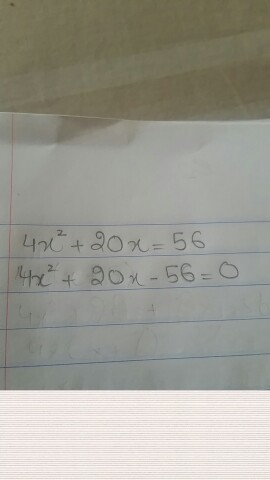 4x² + 20x = 56
4x² + 20x - 56 = 0